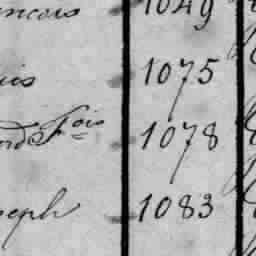 ancois 1049
uis 1075
ord Fois 1078
seph 1083